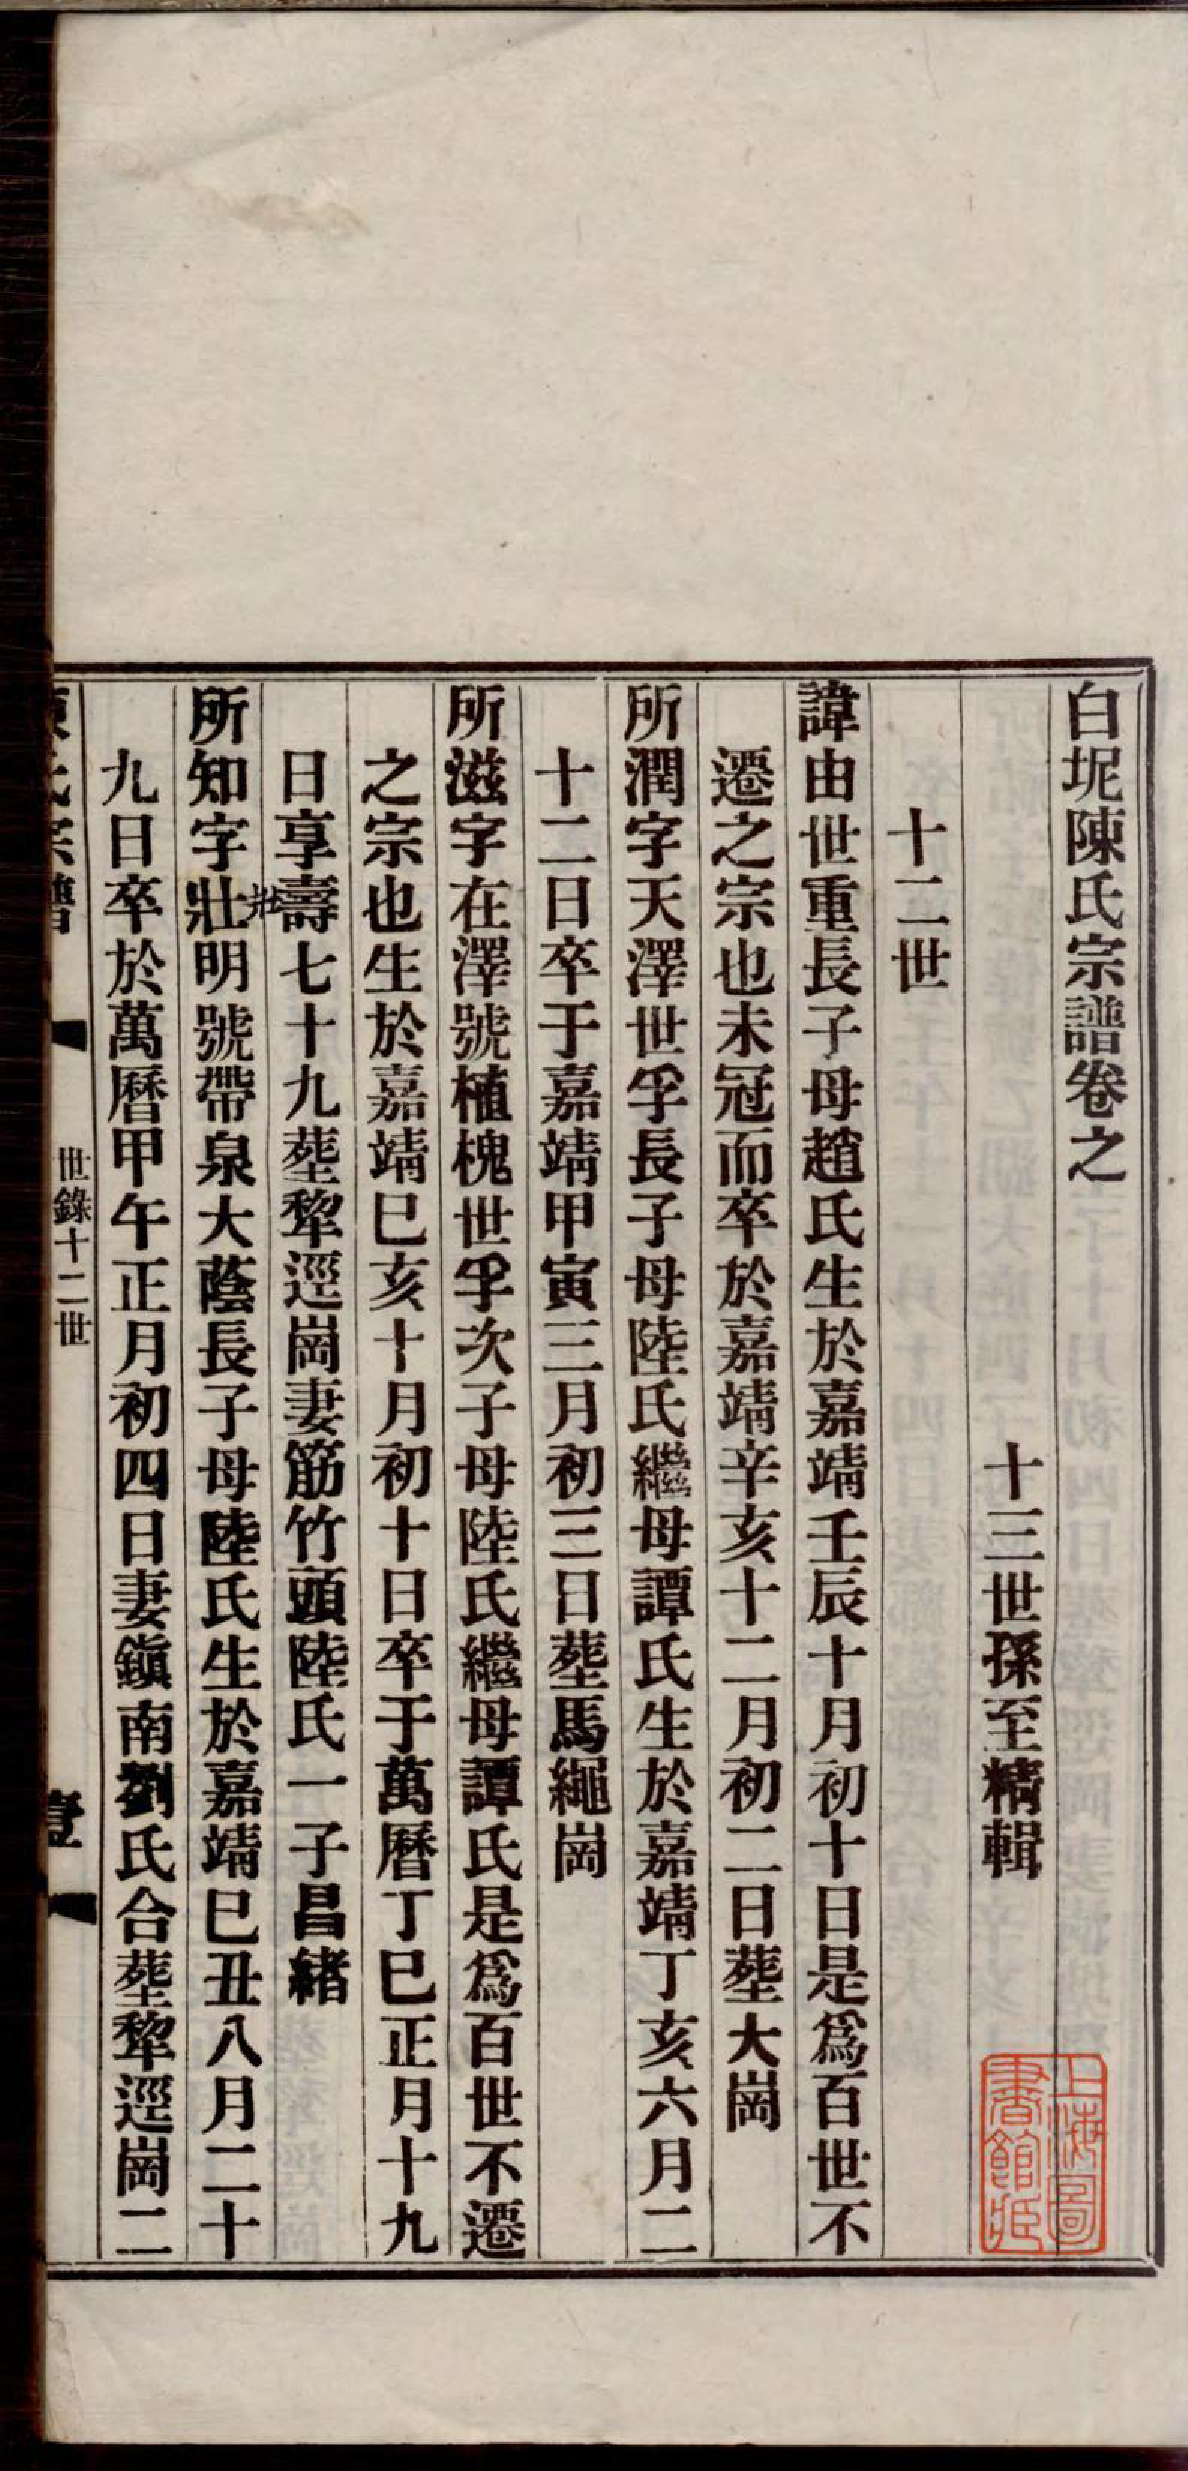 白坭陳氏宗譜卷之
十三世孫至精輯
十二世
諱由世重長子母趙氏生於嘉靖壬辰十月初十日是爲百世不
遷之宗也未冠而卒於嘉靖辛亥十二月初二日塟大崗
所潤字天澤世孚長子母陸氏繼母譚氏生於嘉靖丁亥六月二
十二日卒于嘉靖甲寅三月初三日塟馬繩崗
所滋字在澤號植槐世孚次子母陸氏繼母譚氏是爲百世不遷
之宗也生於嘉靖巳亥十月初十日卒于萬曆丁巳正月十九
日享壽七十九塟犂逕崗妻筋竹頭陸氏一子昌緒
所知字壯明號帶泉大蔭長子母陸氏生於嘉靖巳丑八月二十
九日卒於萬曆甲午正月初四日妻鎭南劉氏合塟犂逕崗二
陳氏宗譜
世錄十二世
壹
上海圖
書館藏